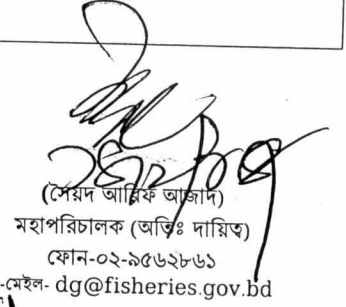 (সৈয়দ আরিফ আজাদ)
মহাপরিচালক (অতিঃ দায়িত্ব)
ফোন-০২-৯৫৬২৮৬১
-মেইল- dg@fisheries.gov.bd